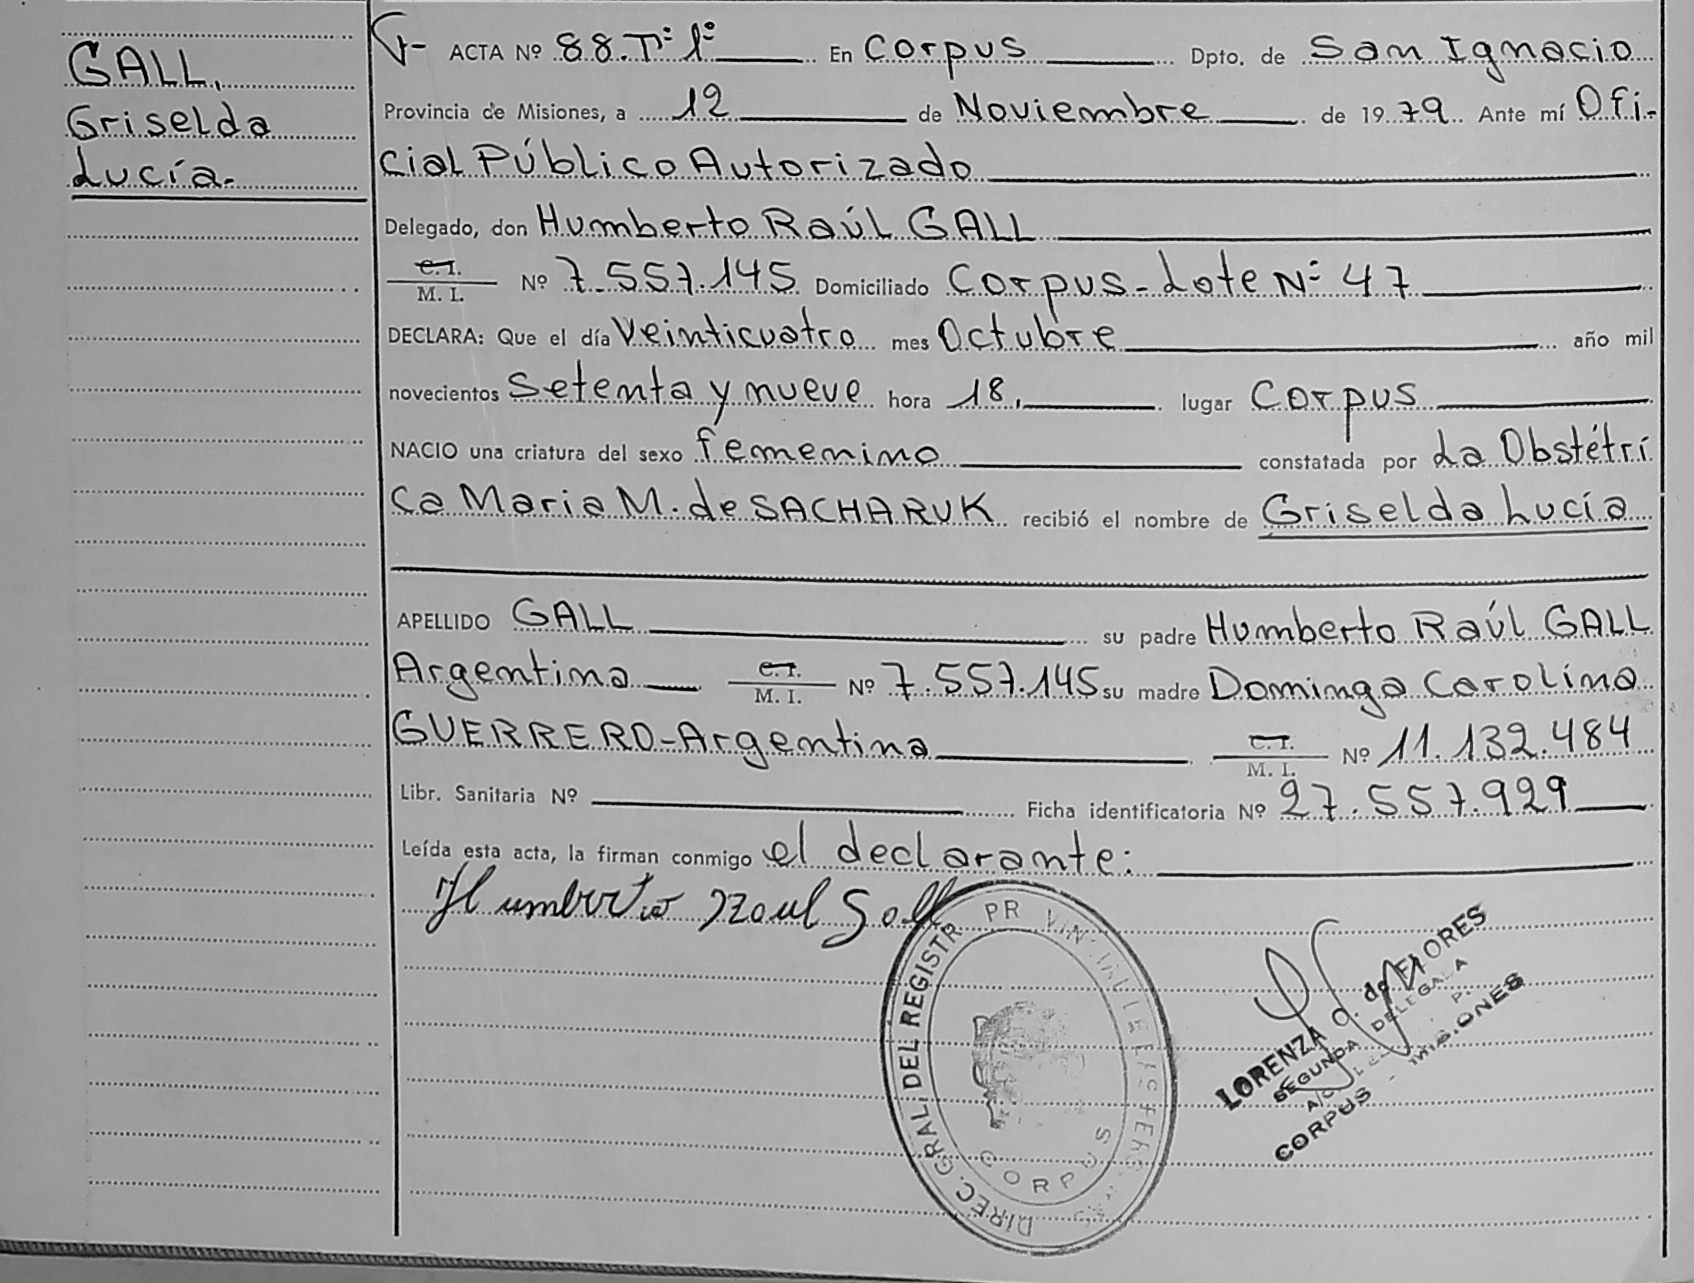 GALL,
Griselda
Lucía.-
ACTA Nº 88.Tº 1º En Corpus Dpto. de San Ignacio
Provincia de Misiones, a 12 de Noviembre de 1979. Ante mí Ofi-
cial Público Autorizado
Delegado, don Humberto Raúl GALL
C.I. / M. I. Nº 7.557.145 Domiciliado Corpus-Lote Nº 47
DECLARA: Que el día Veinticuatro mes Octubre año mil
novecientos Setenta y nueve hora 18, lugar Corpus
NACIO una criatura del sexo femenino constatada por La Obstétri
ca Maria M. de SACHARUK recibió el nombre de Griselda Lucía
APELLIDO GALL su padre Humberto Raúl GALL
Argentino C.I. / M. I. Nº 7.557.145 su madre Dominga Carolina
GUERRERO-Argentina C.I. / M. I. Nº 11.132.484
Libr. Sanitaria Nº Ficha identificatoria Nº 27.557.929
Leída esta acta, la firman conmigo el declarante:
Humberto Raul Gall
DIREC. GRAL. DEL REGISTR PR VIN
CORPUS
LORENZA O. de FLORES
SEGUNDA DELEGADA
CORPUS - MISIONES